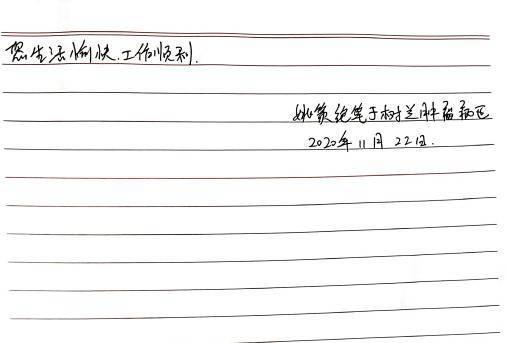 您生活愉快.工作顺利.
姚策绝笔于树兰肿瘤病区
2020年11月22日.